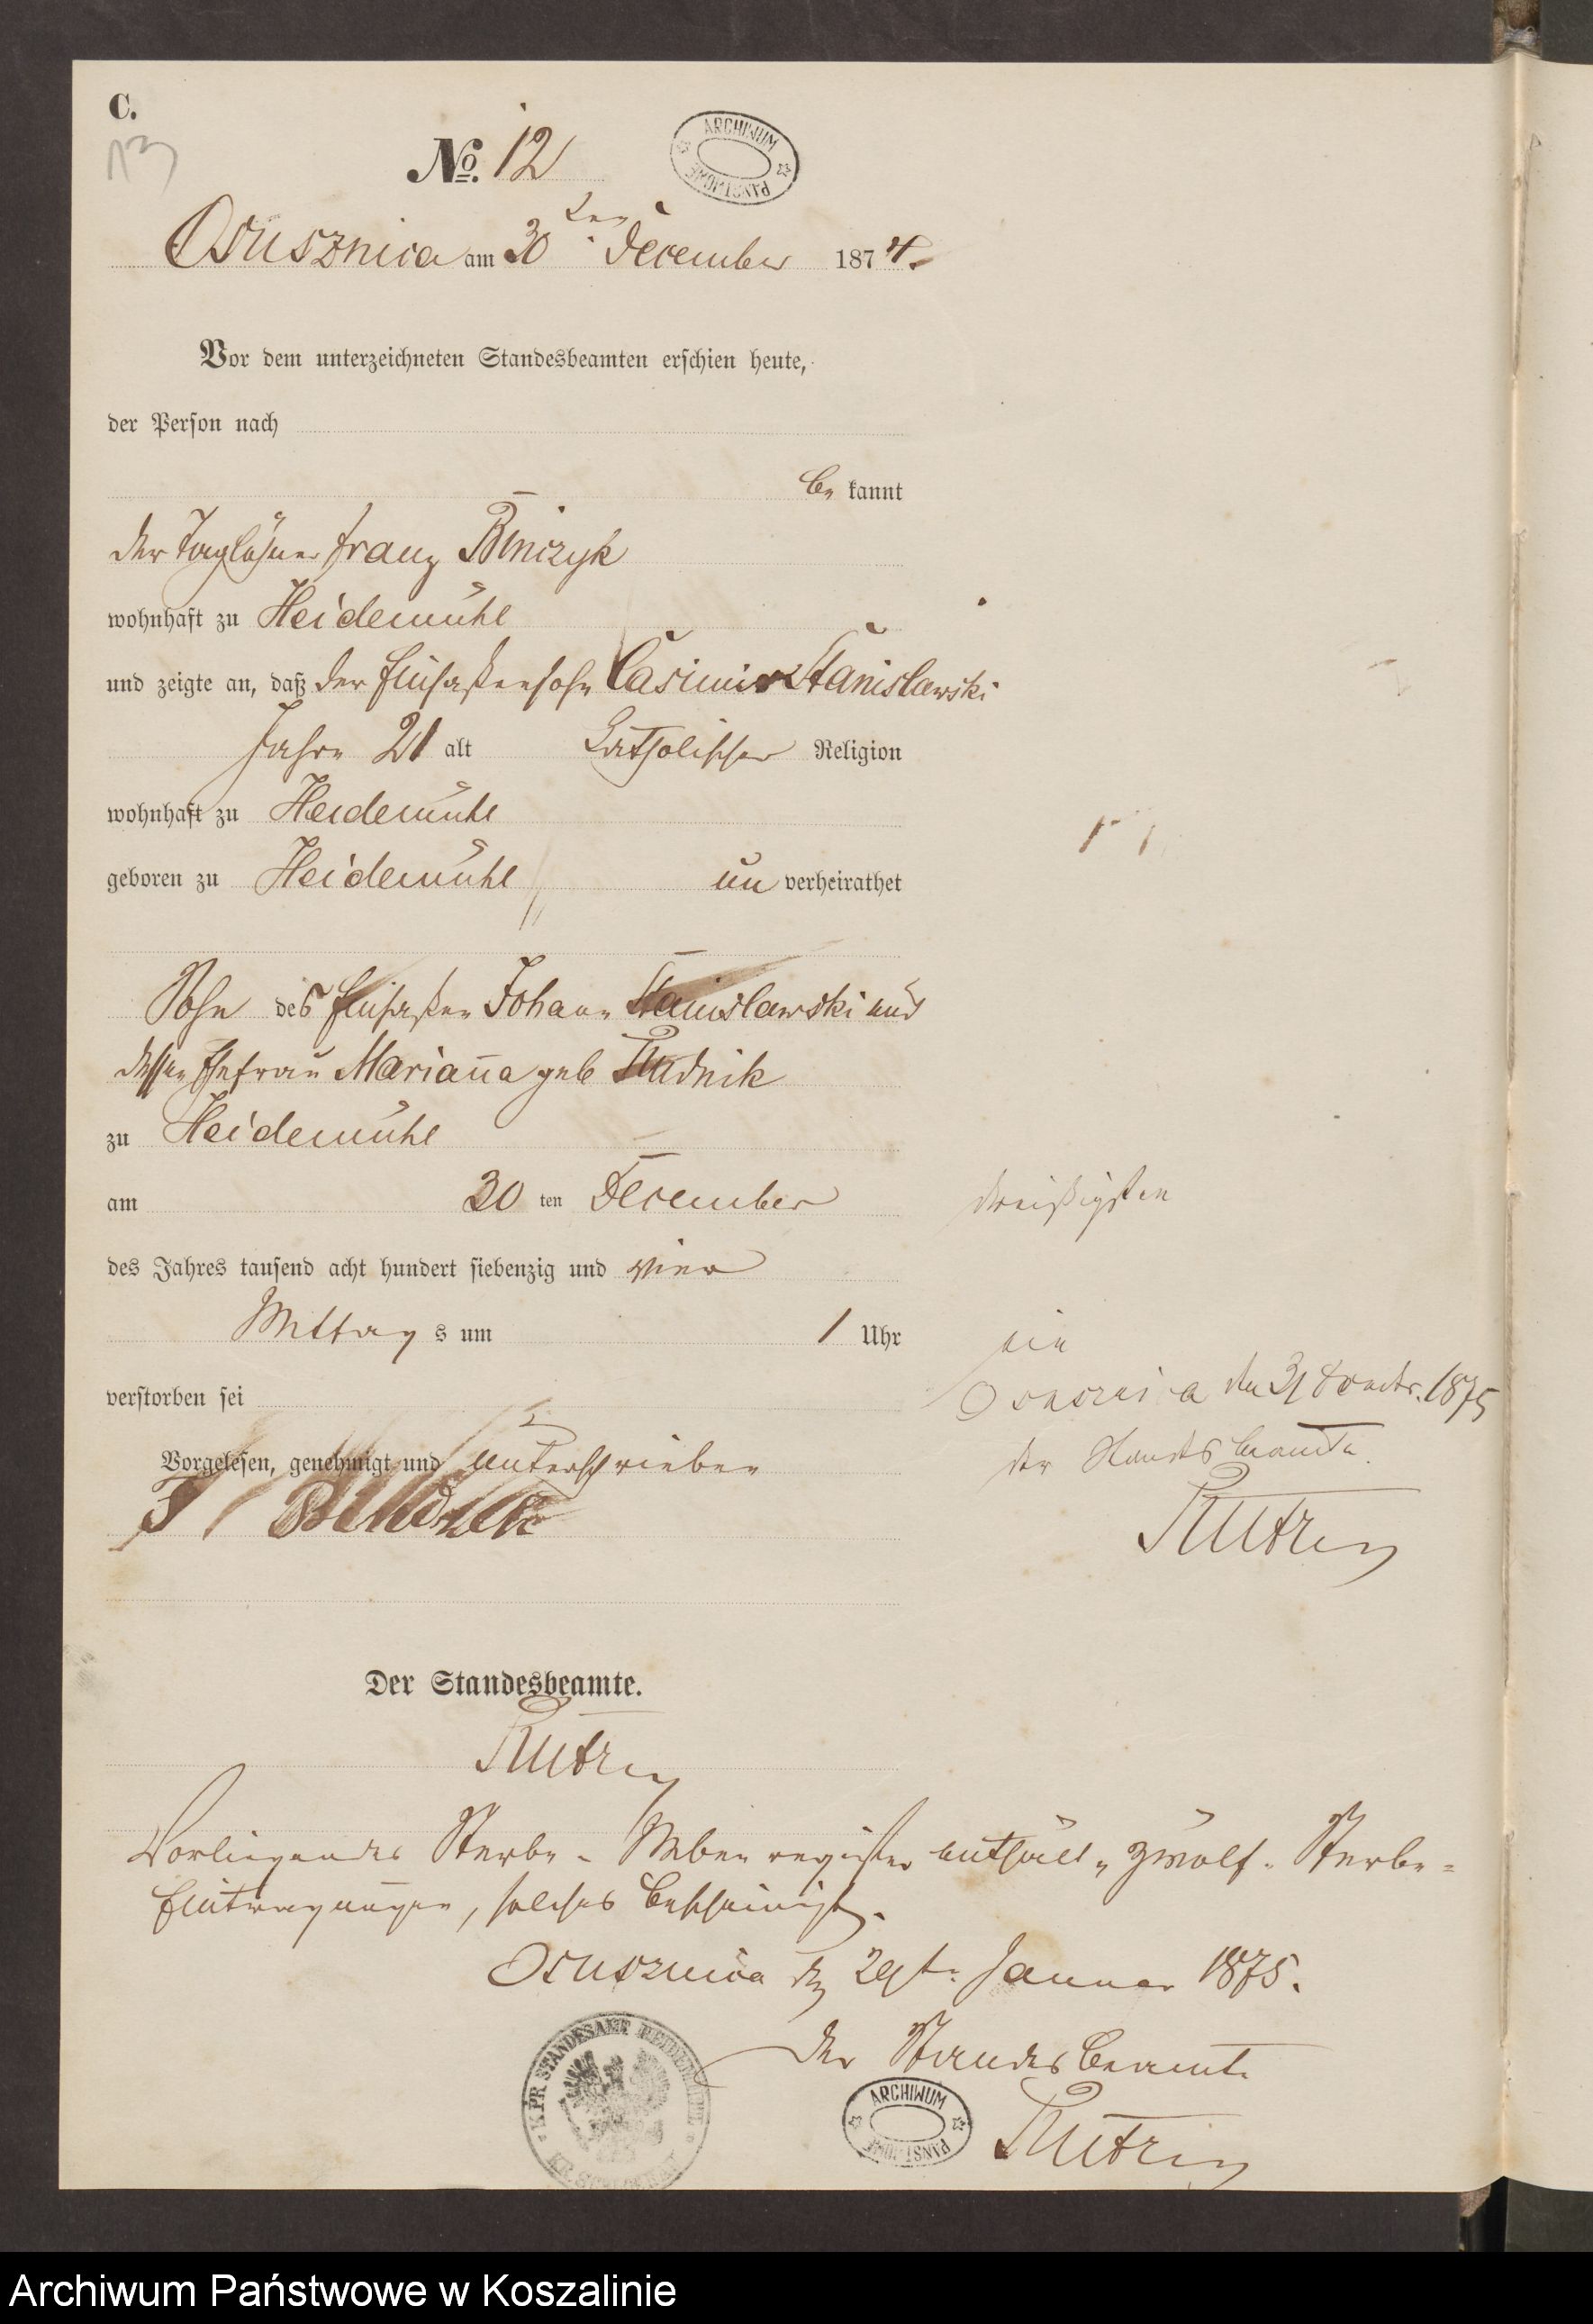 C.
13
No. 12
ARCHIWUM PAŃSTWOWE
Osusznica am 30 ten December 1874.
Vor dem unterzeichneten Standesbeamten erschien heute,
der Person nach
be kannt
der Taglöhner Franz Binczyk
wohnhaft zu Heidemühl
und zeigte an, daß der Einsaßensohn Casimir Stanislawski
Jahre 21 alt Catholischer Religion
wohnhaft zu Heidemühl
geboren zu Heidemühl un verheirathet
Sohn des Einsaßen Johann Stanislawski und
dessen Ehefrau Marianna geb Rudnik
zu Heidemühl
am 30 ten December
dreißigsten
des Jahres tausend acht hundert siebenzig und vier
Mittag s um 1 Uhr
ein
verstorben sei
Osusznica den 31 1875
Vorgelesen, genehmigt und unterschrieben
der Standesbeamte.
F
Der Standesbeamte.
Vorliegendes Sterbe-Neben register enthält „zwölf" Sterbe-
Eintragungen, solches bescheinigt.
Osusznica den 29t. Januar 1875.
Der Standesbeamte
K.PR STANDESAMT
ARCHIWUM PAŃSTWOWE
Archiwum Państwowe w Koszalinie